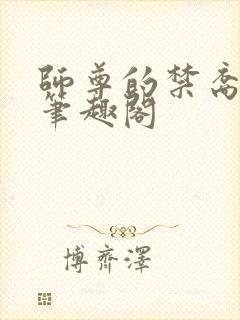 師尊的禁脔
筆趣閣
博齊澤